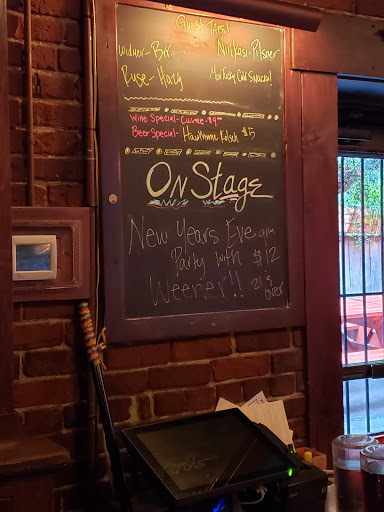 Guest Taps!
Widmer- Brr.... Ninkasi-Pilsner
Fuse- Hazy
Wine Special- Cuvee-$9.00
Beer Special- Hawthorne Kolsch $5
On Stage
New Years Eve 9pm
Party with $12
Weener!! 21 & over